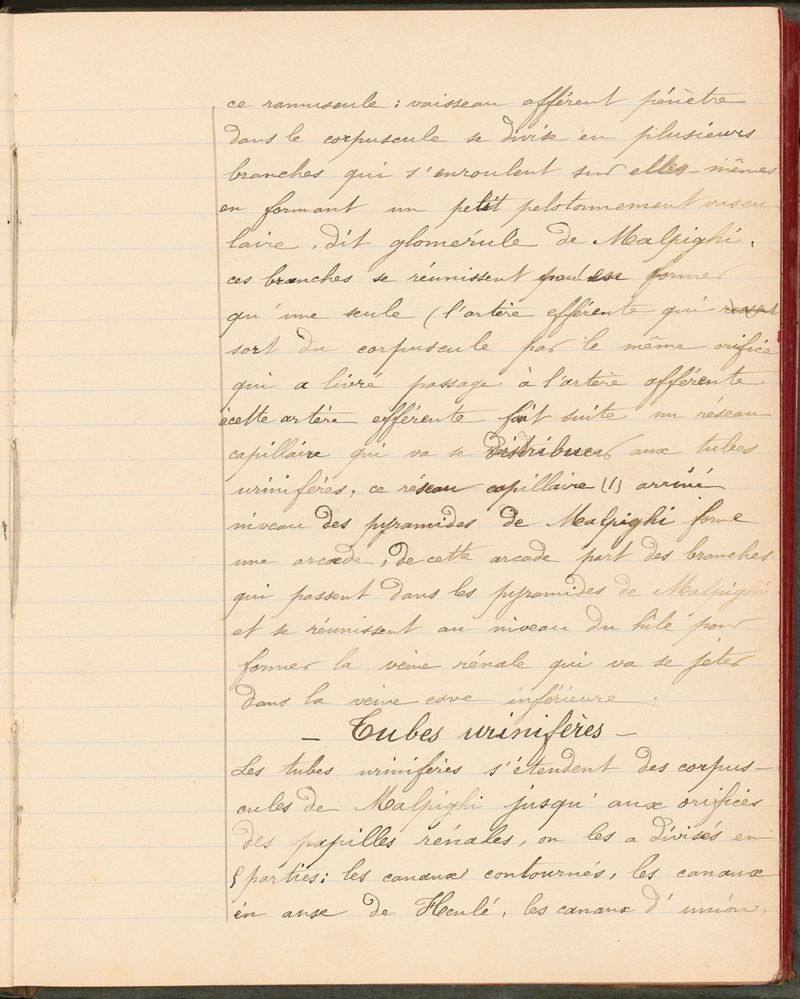 ce ramuscule : vaisseau afférent pénètre
dans le corpuscule se divise en plusieurs
branches qui s'enroulent sur elles-mêmes
en formant un petit pelotonnement vascu-
laire, dit glomérule de Malpighi,
ces branches se réunissent pour en former
qu'une seule (l'artère efférente qui
sort du corpuscule par le même orifice
qui a livré passage à l'artère afférente.
à cette artère efférente fait suite un réseau
capillaire qui va se distribuer aux tubes
urinifères, ce réseau capillaire (1) arrivé
niveau des pyramides de Malpighi forme
une arcade, de cette arcade part des branches
qui passent dans les pyramides de Malpighi
et se réunissent au niveau du hile pour
former la veine rénale qui va se jeter
dans la veine cave inférieure.
- Tubes urinifères -
Les tubes urinifères s'étendent des corpus-
cules de Malpighi jusqu'aux orifices
des papilles rénales, on les a divisés en
parties : les canaux contournés, les canaux
en anse de Henlé, les canaux d'union,